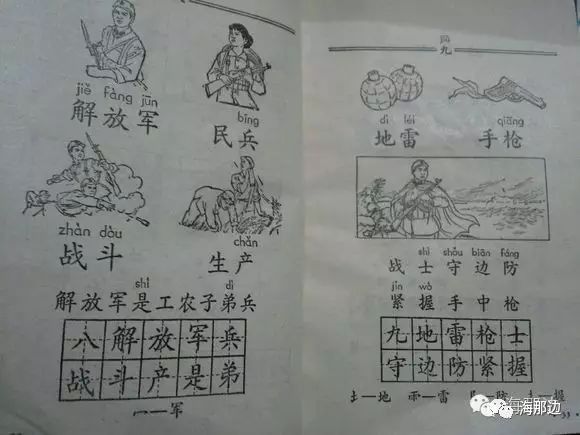 jiě fàng jūn
解放军
bīng
民兵
zhàn dòu
战斗
chǎn
生产
shì dì
解放军是工农子弟兵
八解放军兵
战斗产是弟
冖—军
九
dì léi
地雷
qiāng
手枪
shì shǒu biān fáng
战士守边防
jǐn wò
紧握手中枪
九地雷枪士
守边防紧握
—地 —雷 —防 —握
海那边